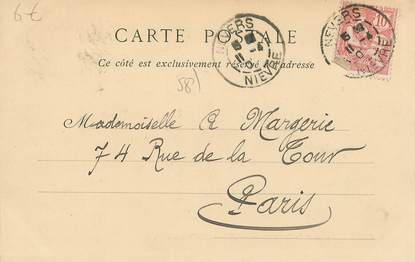 6€
CARTE POSTALE
Ce côté est exclusivement réservé à l'adresse
NEVERS
NIÈVRE
NEVERS
NIÈVRE
10
58
Mademoiselle A Margerie
74 Rue de la Tour
Paris